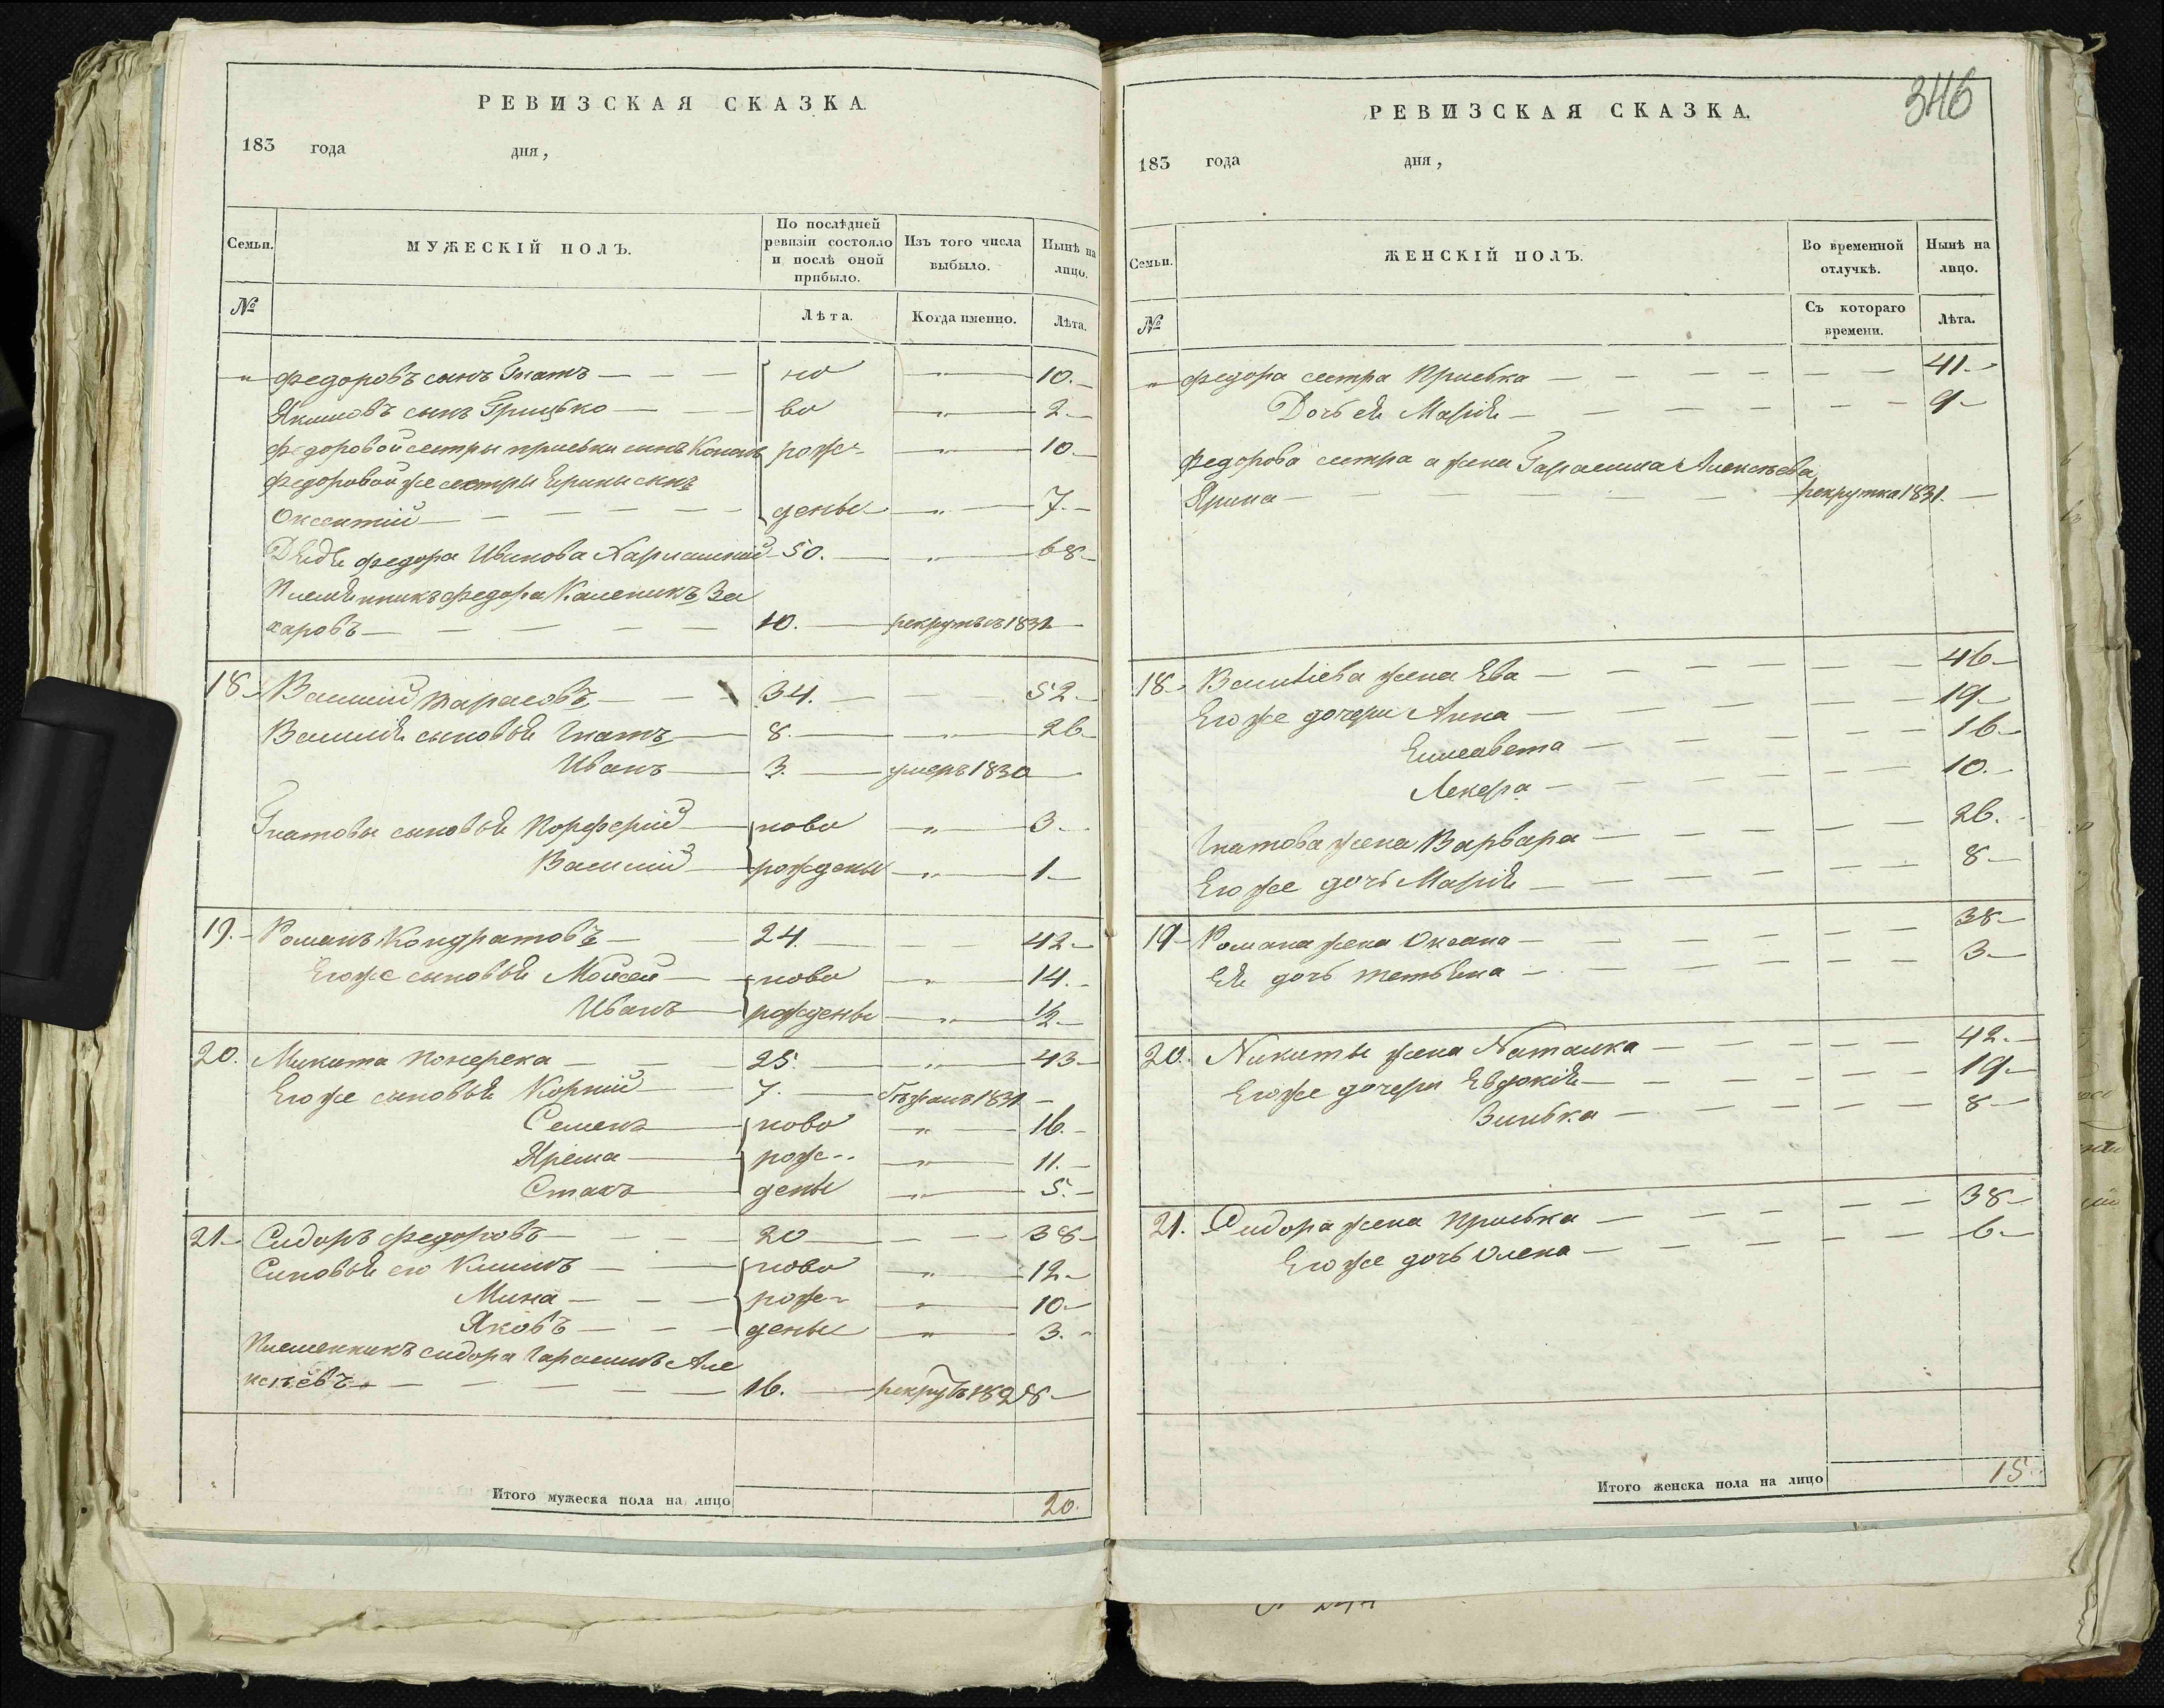 РЕВИЗСКАЯ СКАЗКА.
183 года дня,
Семьи. МУЖЕСКІЙ ПОЛЪ. По послѣдней ревизіи состояло и послѣ оной прибыло. Изъ того числа выбыло. Нынѣ на лицо.
№ Лѣта. Когда именно. Лѣта.
" Федоровъ сынъ Гнатъ — но " 10.
Якимовъ сынъ Грицько — во " 2
Федоровой сестры приськи сынъ Кононъ рож- " 10
Федоровой же сестры Ярины сынъ
Оксентій — дены " 7.
Дядя Федора Ивинова Харлампий 50. " 68
Племянникъ Федора Каленикъ За
харовъ — 10. рекрутъ въ 1831
18. Василий тарасовъ — 34. — 52
Василія сыновья Гнатъ 8. " 26
Иванъ 3. умеръ 1830
Гнатовы сыновья Порферій ново " 3
Василий рождены " 1
19. Романъ Кондратовъ — 24. — 42
Егоже сыновья Мойсей ново " 14.
Иванъ рождены " ½
20. Микита Поперека — 25. " 43
Его же сыновья Корній 7. бѣжалъ 1831
Семенъ ново " 16.
Ярема рож- " 11.
Стахъ дены " 5.
21. Сидоръ Федоровъ — 20 — 38
Сыновья его Климъ ново " 12
Мина — рож- " 10
Яковъ — дены " 3.
Племенникъ сидора Гарасимъ Але
ксѣевъ — 16. рекрутъ 1828
Итого мужеска пола на лицо 20.
346
РЕВИЗСКАЯ СКАЗКА.
183 года дня,
Семьи. ЖЕНСКІЙ ПОЛЪ. Во временной отлучкѣ. Нынѣ на лицо.
№ Съ котораго времени. Лѣта.
" Федора сестра Приська — 41.
Дочь ея Марія — 9
Федорова сестра а жена Гарасима Алексѣева
Ярина — рекрутка 1831.
18. Василіева жена Ева — 46
Его же дочери Анна — 19
Елисавета — 16
Лекера — 10.
Гнатова жена Варвара — 26.
Его же дочь Марія — 8
19 Романа жена Оксана — 38
Ея дочь тетьяна — 3
20. Никиты жена Наталка — 42.
Его же дочери Евдокія — 19
Зинька — 8
21. Сидора жена приська — 38
Его же дочь Олена — 6
Итого женска пола на лицо 15.